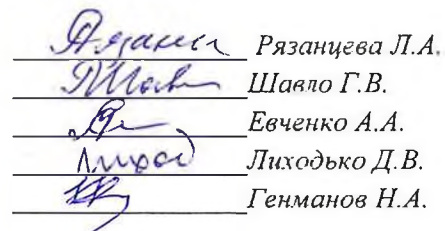 Рязанцева Л.А.
Шавло Г.В.
Евченко А.А.
Лиходько Д.В.
Генманов Н.А.